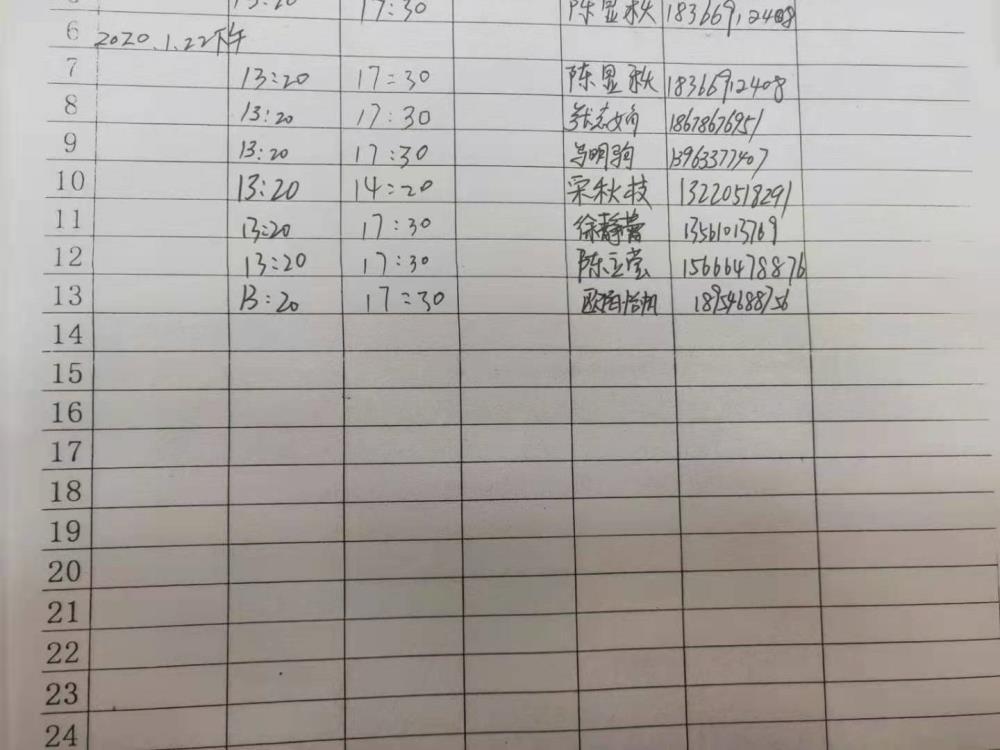 5 13:20 17:30 陈显秋 18366912408
6 2020.1.22下午
7 13:20 17:30 陈显秋 18366912408
8 13:20 17:30 张志娇 18678676951
9 13:20 17:30 马明驹 13963377407
10 13:20 14:20 宋秋枝 13220518291
11 13:20 17:30 徐静蕾 13561013769
12 13:20 17:30 陈立莹 15666478876
13 13:20 17:30 18954688756
14
15
16
17
18
19
20
21
22
23
24